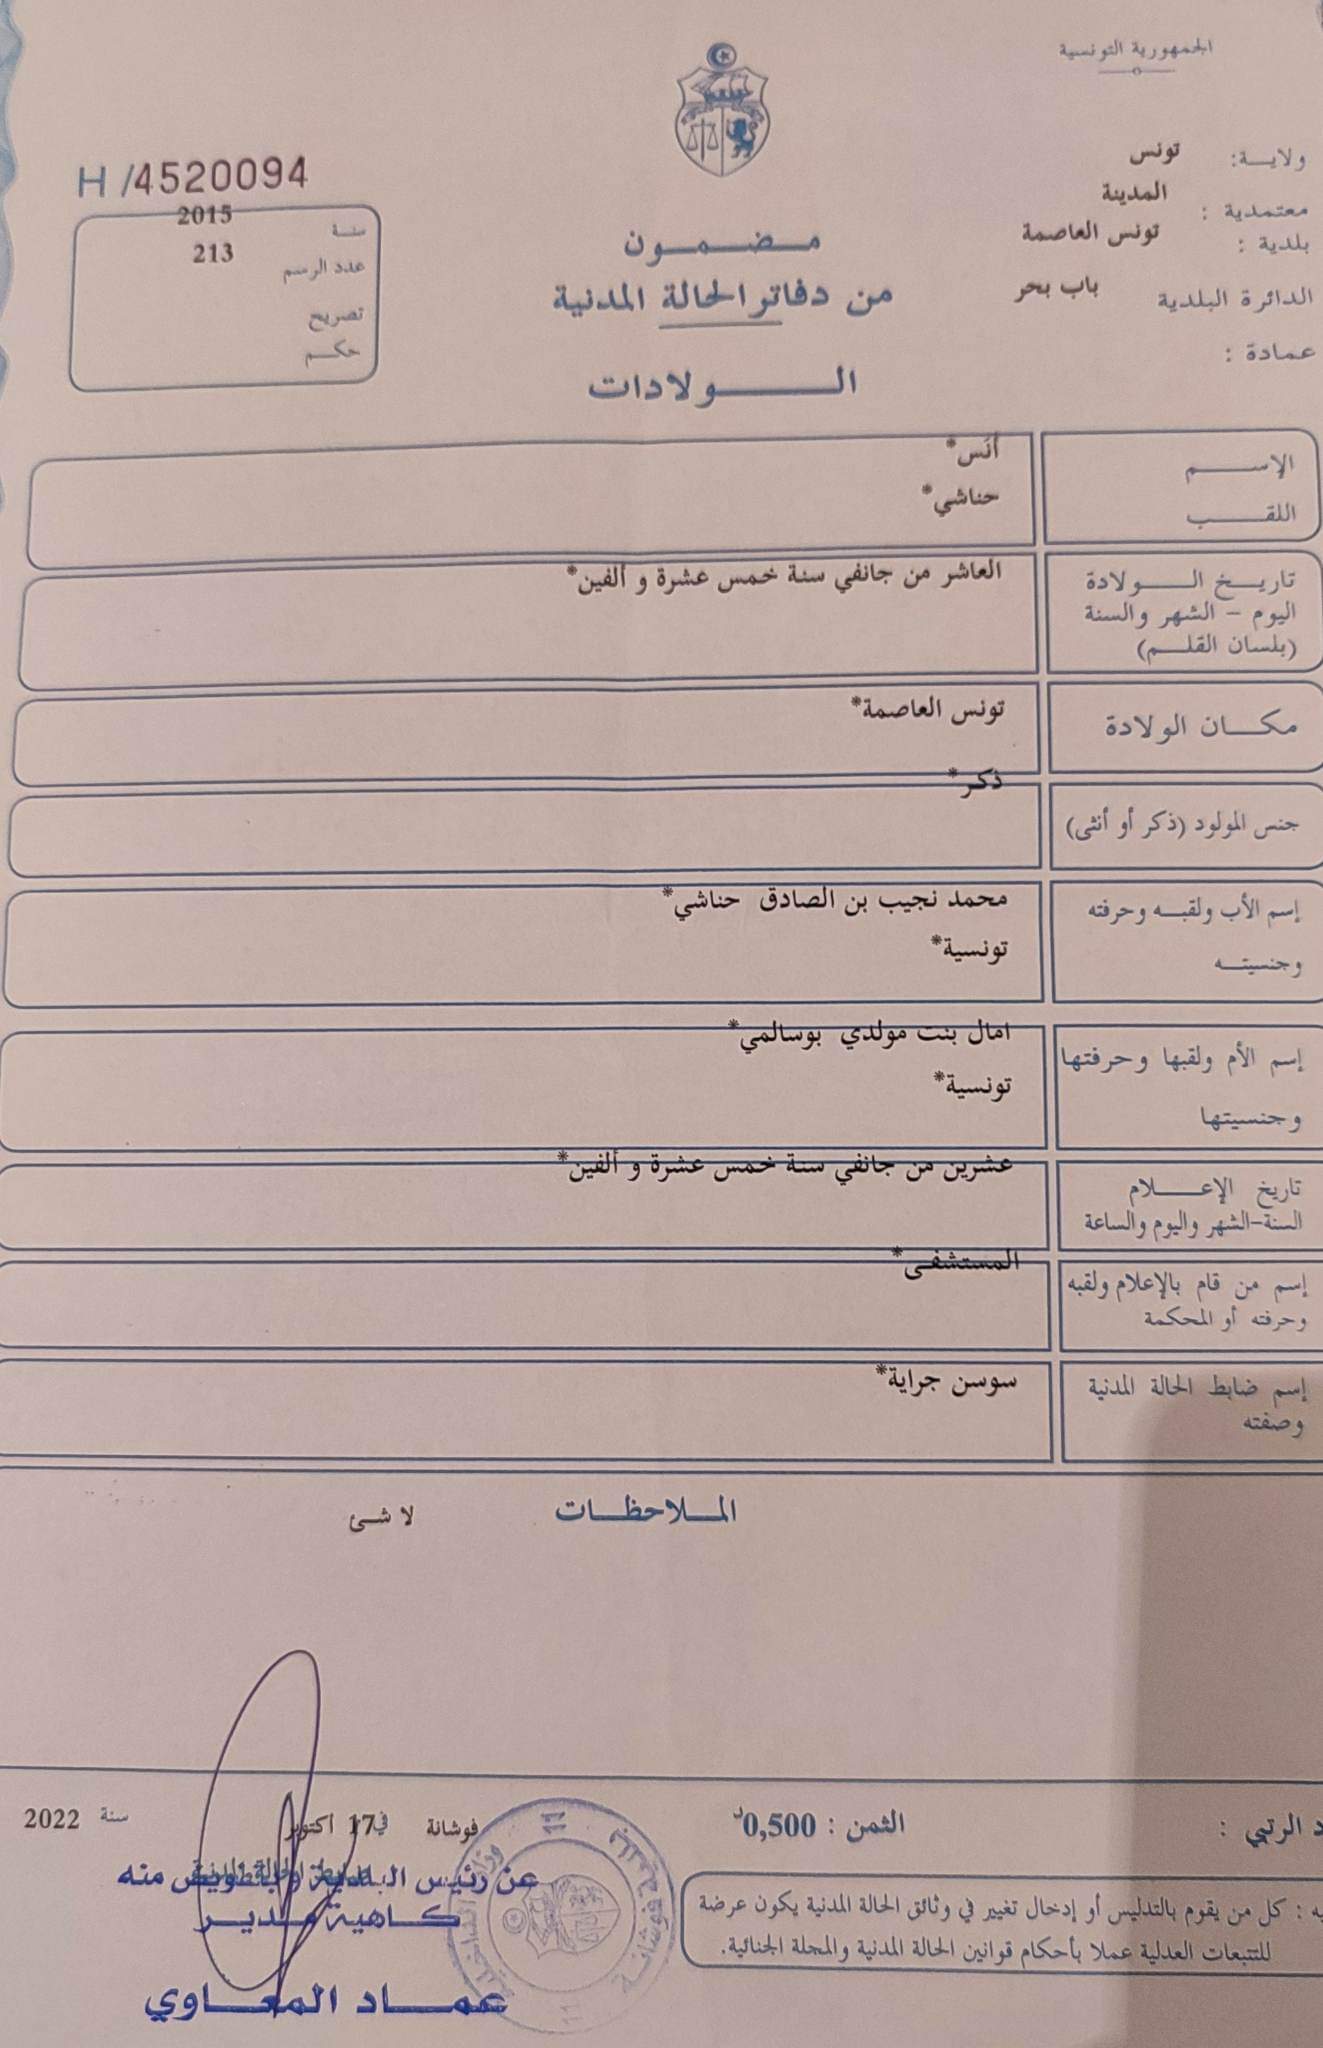 الجمهورية التونسية
ولاية: تونس
معتمدية : المدينة
بلدية : تونس العاصمة
الدائرة البلدية باب بحر
عمادة :
H/4520094
سنة 2015
عدد الرسم 213
تصريح
حكم
مضمون
من دفاتر الحالة المدنية
الولادات
الإسم أنس*
اللقب حناشي*
تاريخ الولادة العاشر من جانفي سنة خمس عشرة و ألفين*
اليوم - الشهر والسنة
(بلسان القلم)
مكان الولادة تونس العاصمة*
جنس المولود (ذكر أو أنثى) ذكر*
إسم الأب ولقبه وحرفته محمد نجيب بن الصادق حناشي*
وجنسيته تونسية*
إسم الأم ولقبها وحرفتها امال بنت مولدي بوسالمي*
وجنسيتها تونسية*
تاريخ الإعلام عشرين من جانفي سنة خمس عشرة و ألفين*
السنة-الشهر واليوم والساعة
إسم من قام بالإعلام ولقبه المستشفى*
وحرفته أو المحكمة
إسم ضابط الحالة المدنية سوسن جراية*
وصفته
الملاحظات لا شئ
د الرتبي :
الثمن : 0,500د
فوشانة في 17 أكتوبر سنة 2022
عن رئيس البلدية وبتفويض منه
كاهية مدير
عماد المعاوي
يه : كل من يقوم بالتدليس أو إدخال تغيير في وثائق الحالة المدنية يكون عرضة
للتتبعات العدلية عملا بأحكام قوانين الحالة المدنية والمجلة الجنائية.
11
11